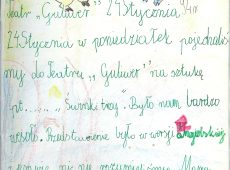 Teatr „Guliwer" 24 Stycznia 94r
24 Stycznia w poniedziałek pojechali-
my do teatru „Guliwer" na sztukę
pt. ..... „Świnki trzy". Było nam bardzo
wesoło. Przedstawienie było w wersji angielskiej